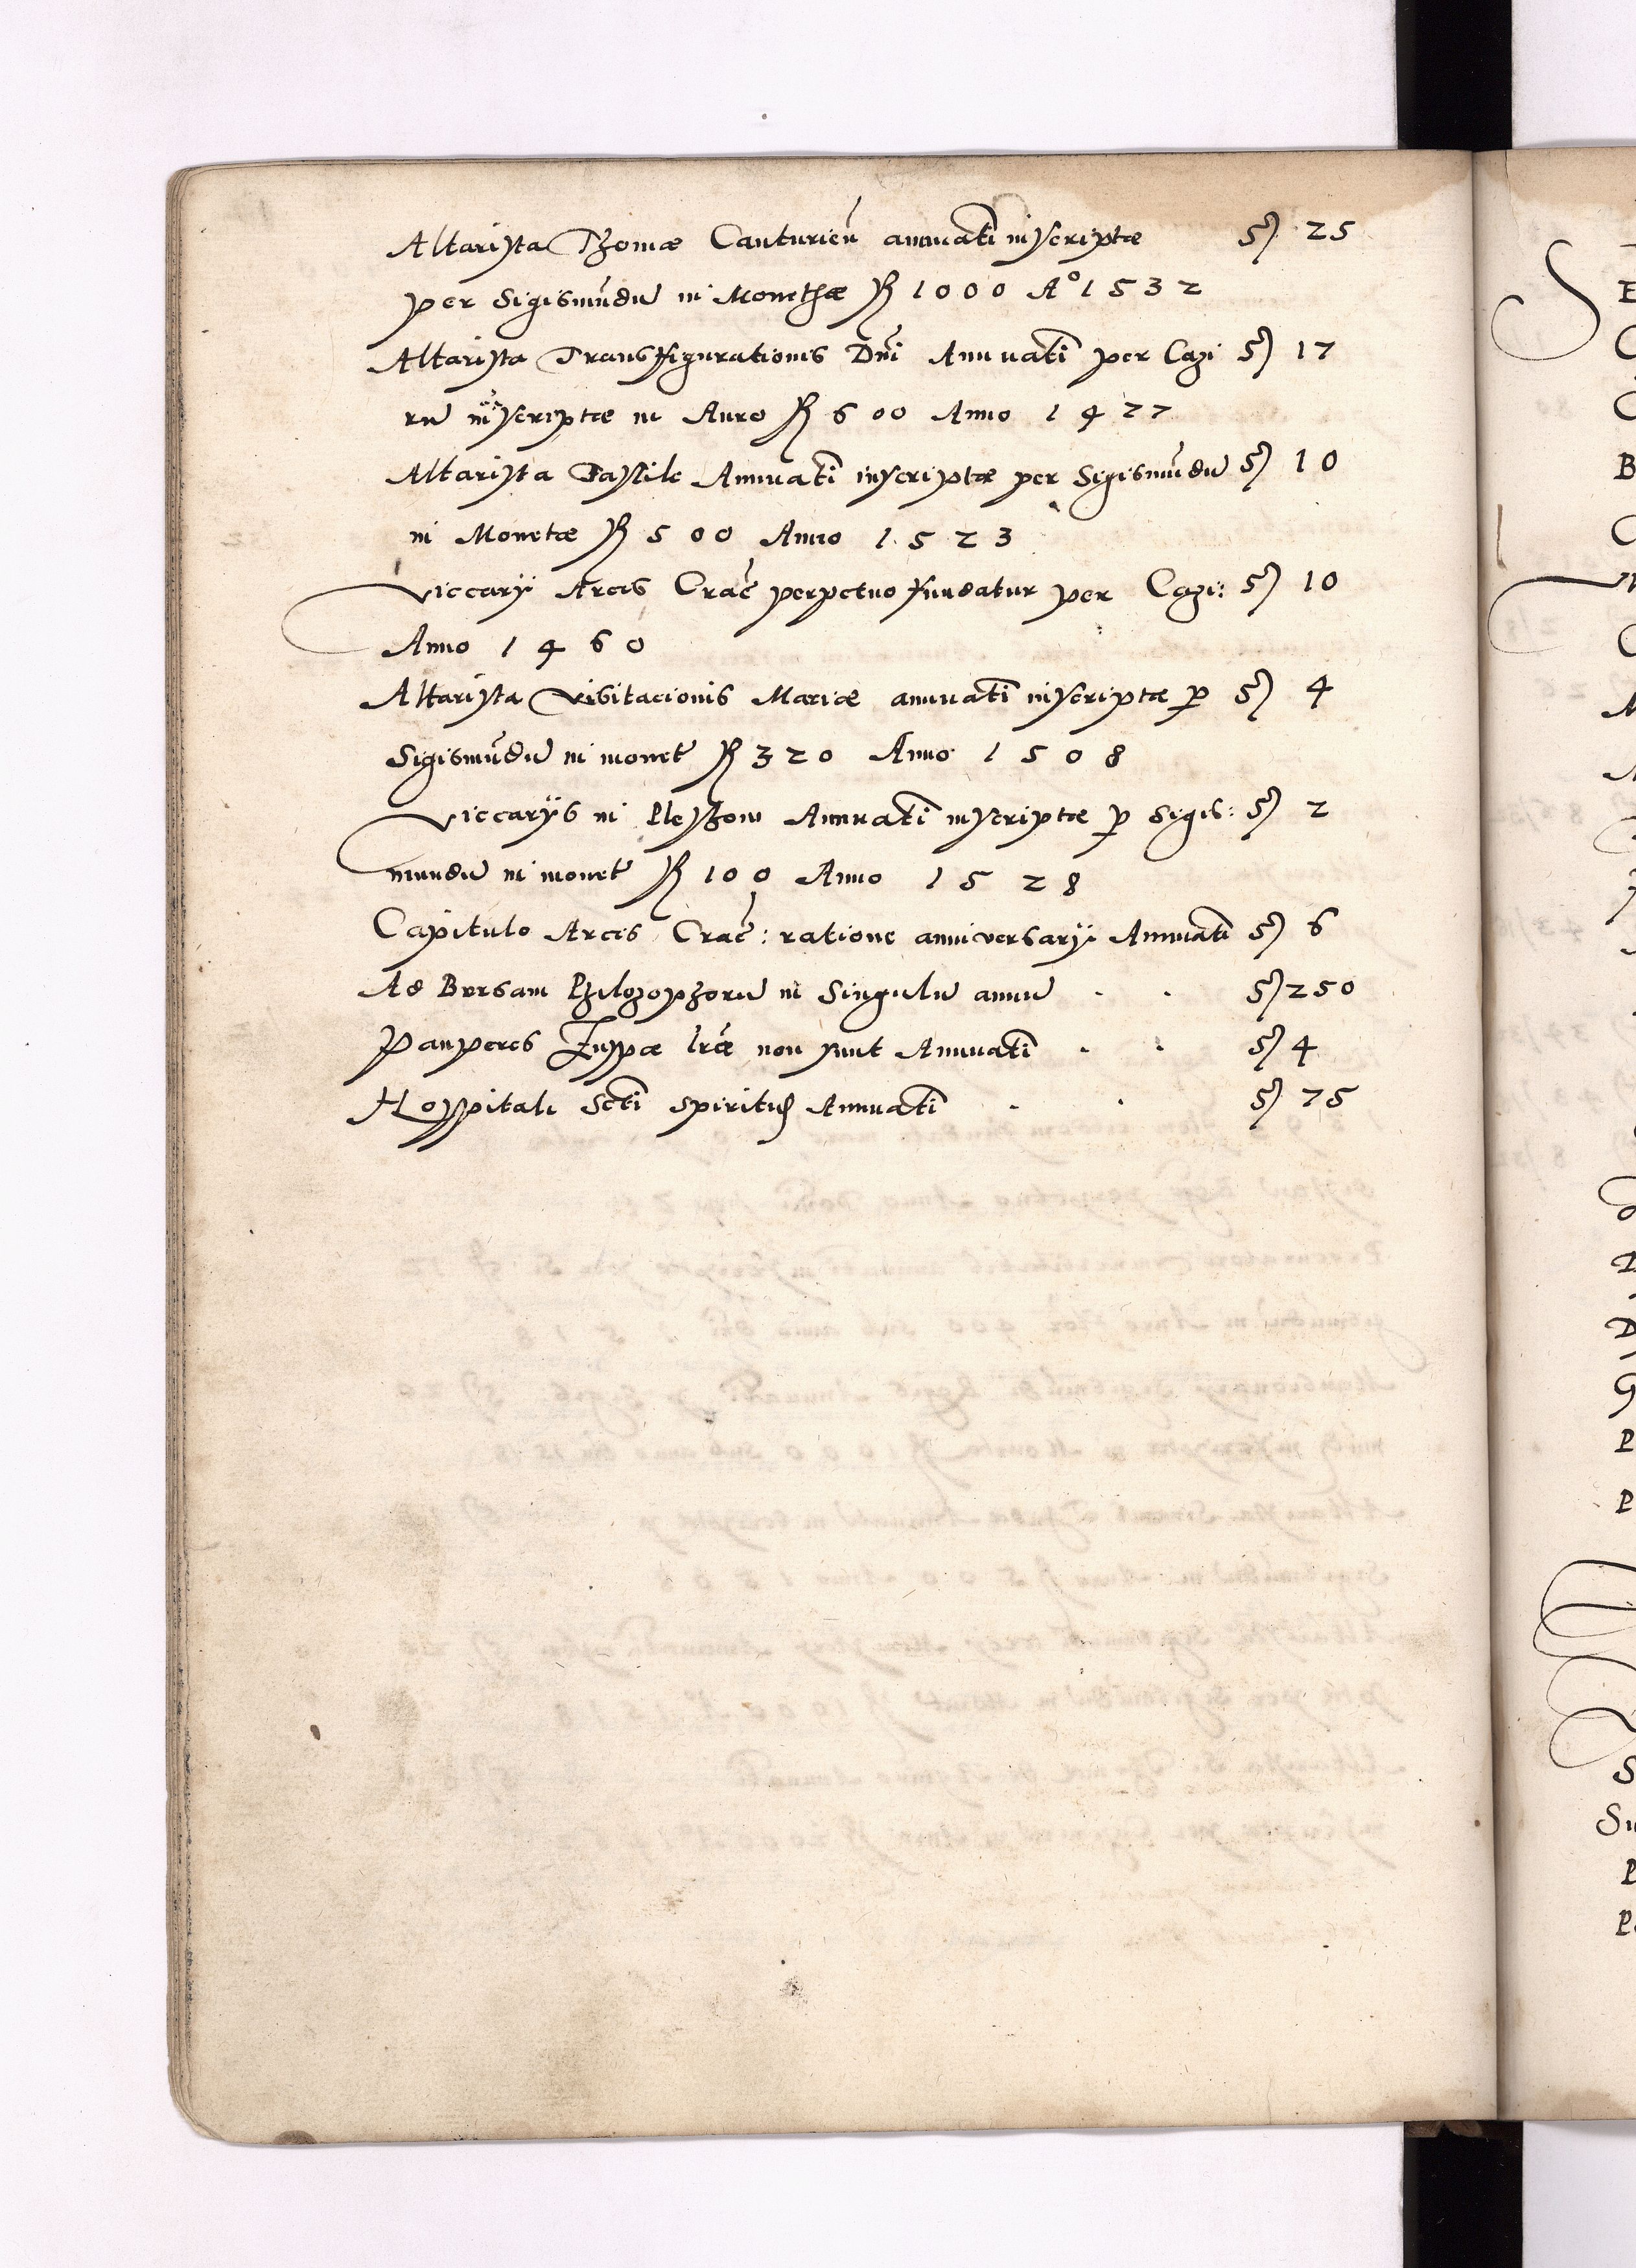 Altarista Thomæ Canturieñ annuati inscriptæ ß 25
per Sigismūdū in Monethæ fl 1000 A° 1532
Altarista Transfigurationis Dñi Annuati per Cazi ß 17
rū inscriptæ in Auro fl 600 Anno 1477
Altarista Annuati inscriptæ per Sigismūdū ß 10
in Monetæ fl 500 Anno 1523
Viccarÿ Arcis Crac̃ perpetuo fundatur per Cazi: ß 10
Anno 1460
Altarista Visitacionis Mariæ annuati inscriptæ ꝑ ß 4
Sigismūdū in monet fl 320 Anno 1508
Viccarÿs in Pleszow Annuati inscriptæ ꝑ Sigis: ß 2
mundū in monet fl 100 Anno 1528
Capitulo Arcis Crac̃: ratione anniversarÿ Annuati ß 6
Ad Bursam Philozophorū in Singulū annū . . ß 250
Pauperes Zuppæ lr̃æ non sunt Annuati . . ß 4
Hospitali Scti spiritus Annuati . . ß 75